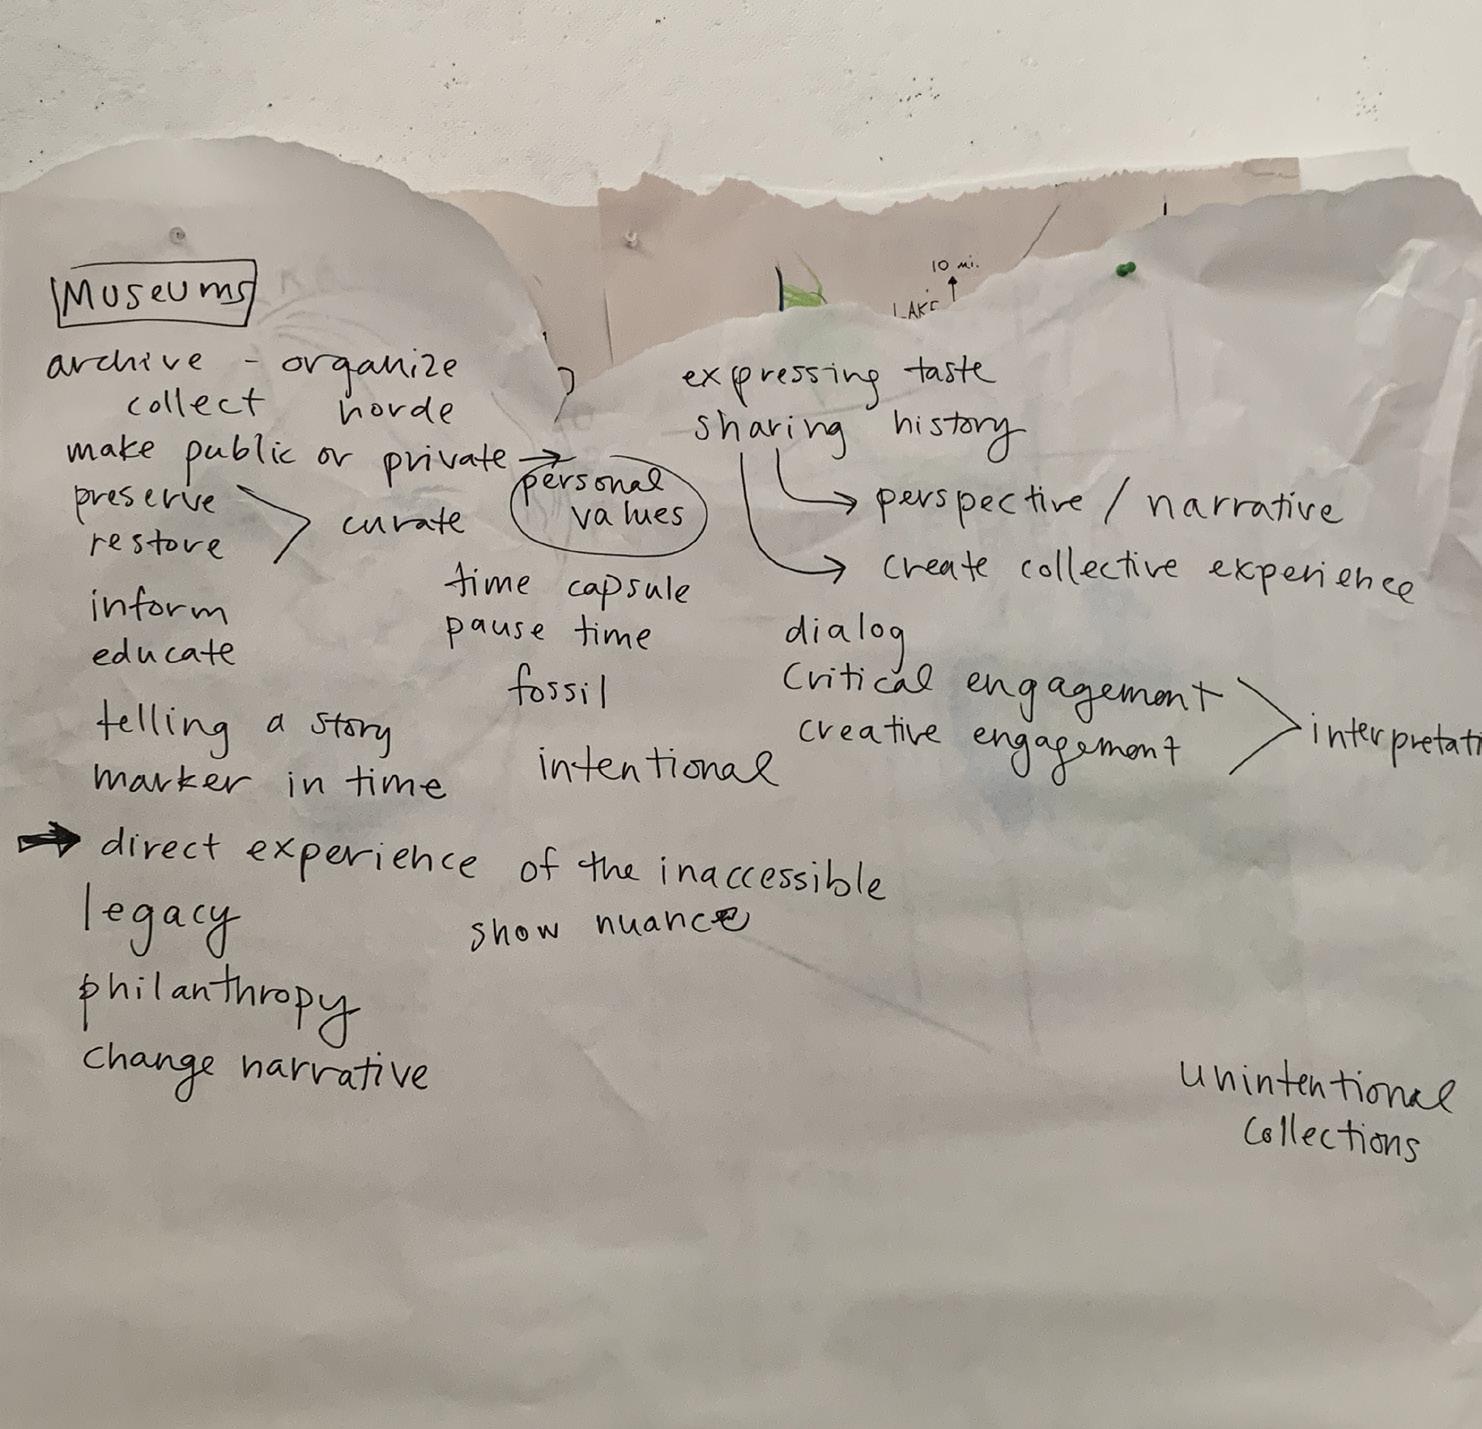 10 mi.
LAKE
Museums
archive - organize
collect horde
make public or private →
preserve
restore
curate
personal
values
inform
educate
time capsule
pause time
fossil
telling a story
marker in time
intentional
expressing taste
sharing history
→ perspective / narrative
→ create collective experience
dialog
critical engagement
creative engagement
interpretati
→ direct experience of the inaccessible
legacy
show nuance
philanthropy
change narrative
unintentional
collections